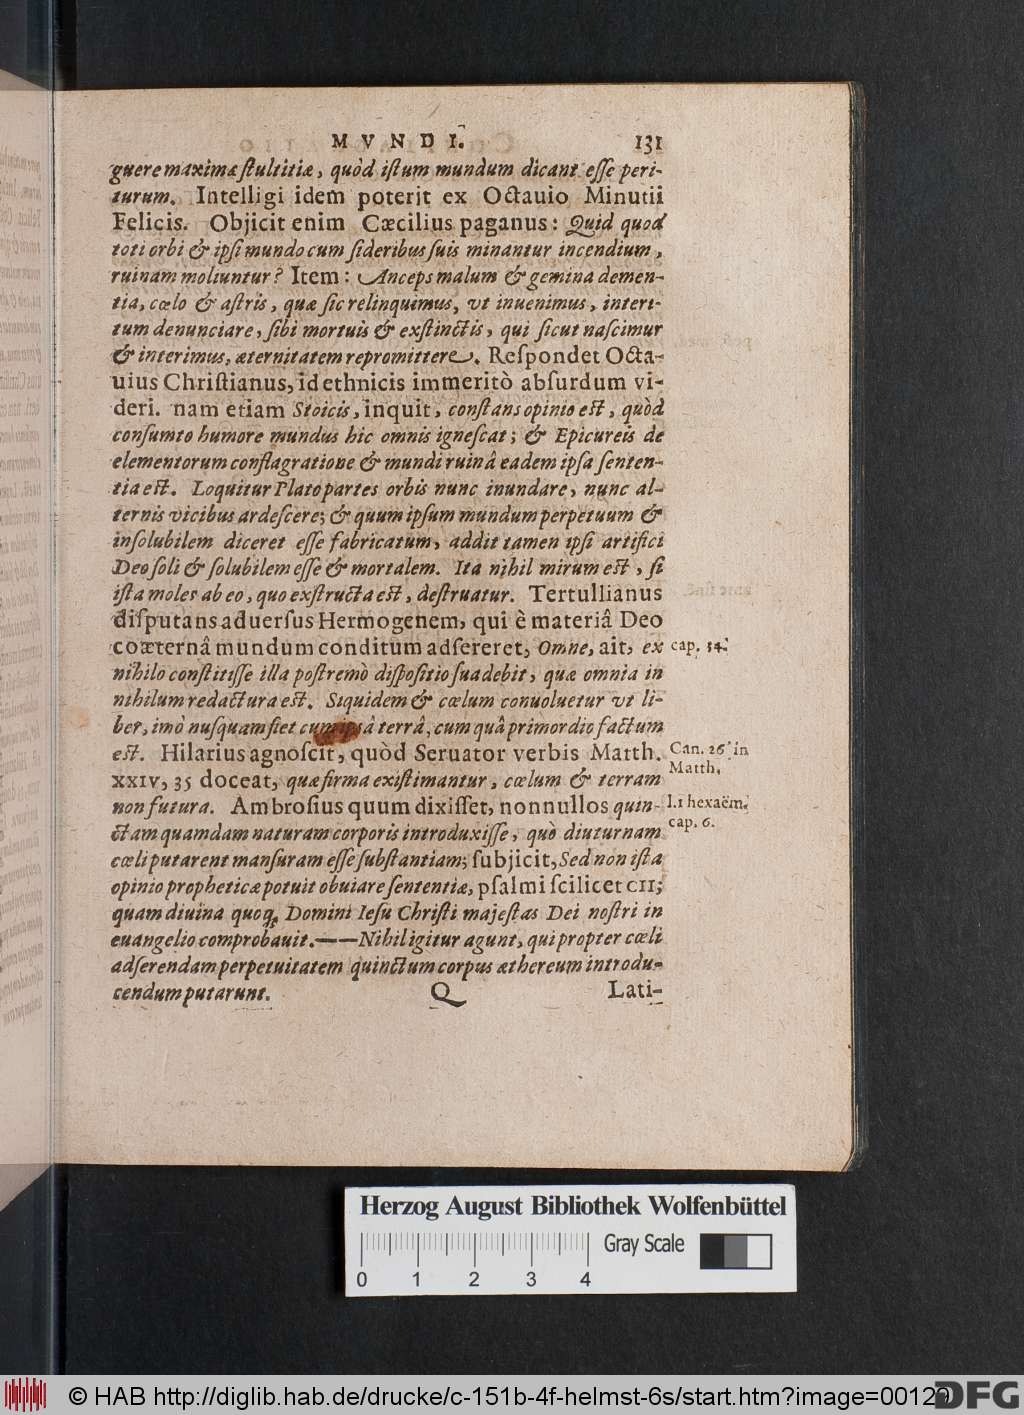 MVNDI. 131
guere maximæ ſtultitiæ, quòd iſtum mundum dicant eſſe peri-
turum. Intelligi idem poterit ex Octauio Minutii
Felicis. Objicit enim Cæcilius paganus: Quid quod
toti orbi & ipſi mundo cum ſideribus ſuis minantur incendium,
ruinam moliuntur? Item: Anceps malum & gemina demen-
tia, cœlo & aſtris, quæ ſic relinquimus, vt inuenimus, interi-
tum denunciare, ſibi mortuis & exſtinctis, qui ſicut naſcimur
& interimus, æternitatem repromittere. Reſpondet Octa-
uius Chriſtianus, id ethnicis immeritò abſurdum vi-
deri. nam etiam Stoicis, inquit, conſtans opinio eſt, quòd
conſumto humore mundus hic omnis igneſcat; & Epicureis de
elementorum conflagratione & mundi ruinâ eadem ipſa ſenten-
tia eſt. Loquitur Plato partes orbis nunc inundare, nunc al-
ternis vicibus ardeſcere; & quum ipſum mundum perpetuum &
inſolubilem diceret eſſe fabricatum, addit tamen ipſi artifici
Deo ſoli & ſolubilem eſſe & mortalem. Ita nihil mirum eſt, ſi
iſta moles ab eo, quo exſtructa eſt, deſtruatur. Tertullianus
diſputans aduerſus Hermogenem, qui è materiâ Deo
coæternâ mundum conditum adſereret, Omne, ait, ex cap. 34.
nihilo conſtitiſſe illa poſtremò diſpoſitio ſuadebit, quæ omnia in
nihilum redactura eſt. Siquidem & cœlum conuoluetur vt li-
ber, imò nuſquam fiet cum ipsâ terrâ, cum quâ primordio factum
eſt. Hilarius agnoſcit, quòd Seruator verbis Matth. Can. 26. in
Matth.
XXIV, 35 doceat, quæ firma exiſtimantur, cœlum & terram
non futura. Ambroſius quum dixiſſet, nonnullos quin- l.1 hexaëm.
cap. 6.
ctam quamdam naturam corporis introduxiſſe, quò diuturnam
cœli putarent manſuram eſſe ſubſtantiam; ſubjicit, Sed non iſta
opinio propheticæ potuit obuiare ſententiæ, pſalmi ſcilicet CII;
quam diuina quoq, Domini Ieſu Chriſti majeſtas Dei noſtri in
euangelio comprobauit.——Nihil igitur agunt, qui propter cœli
adſerendam perpetuitatem quinctum corpus æthereum introdu-
cendum putarunt. Q Lati-
Herzog August Bibliothek Wolfenbüttel
Gray Scale
0 1 2 3 4
© HAB http://diglib.hab.de/drucke/c-151b-4f-helmst-6s/start.htm?image=00129
DFG